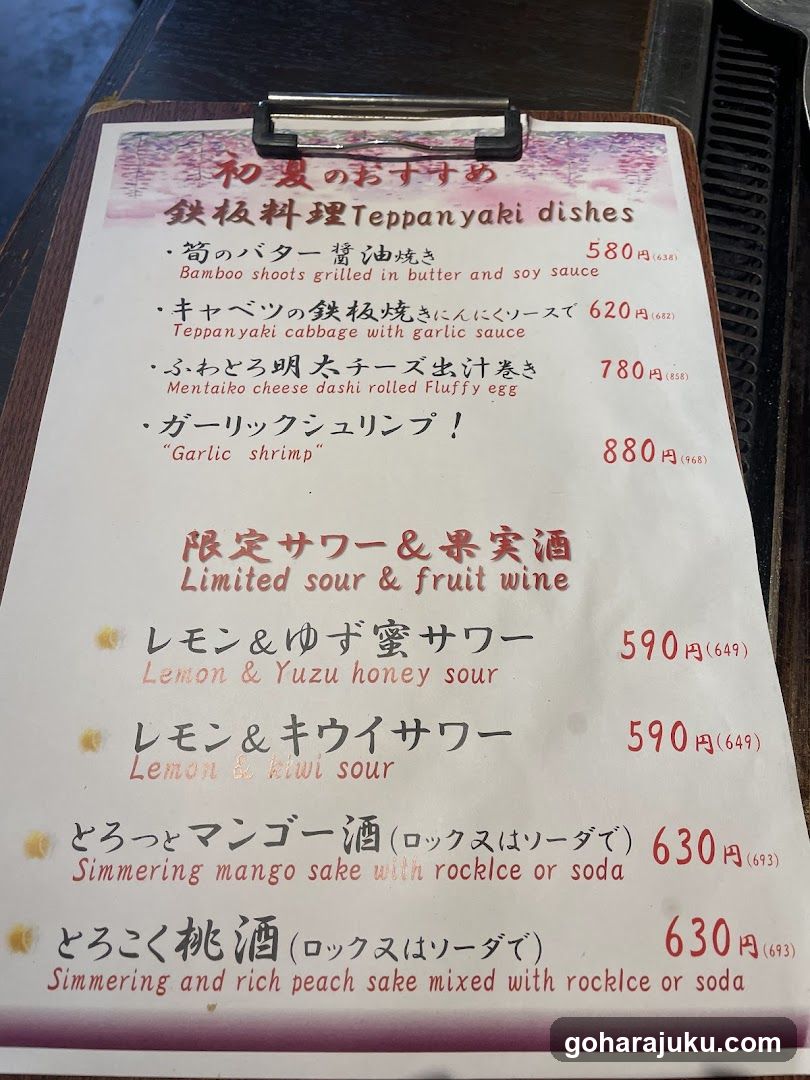 初夏のおすすめ
鉄板料理Teppanyaki dishes
・筍のバター醤油焼き 580円(638)
Bamboo shoots grilled in butter and soy sauce
・キャベツの鉄板焼きにんにくソースで 620円(682)
Teppanyaki cabbage with garlic sauce
・ふわとろ明太チーズ出汁巻き 780円(858)
Mentaiko cheese dashi rolled Fluffy egg
・ガーリックシュリンプ!
"Garlic shrimp" 880円(968)
限定サワー&果実酒
Limited sour & fruit wine
レモン&ゆず蜜サワー 590円(649)
Lemon & Yuzu honey sour
レモン&キウイサワー 590円(649)
Lemon & kiwi sour
とろっとマンゴー酒(ロック又はソーダで) 630円(693)
Simmering mango sake with rockIce or soda
とろこく桃酒(ロック又はソーダで) 630円(693)
Simmering and rich peach sake mixed with rockIce or soda
goharajuku.com